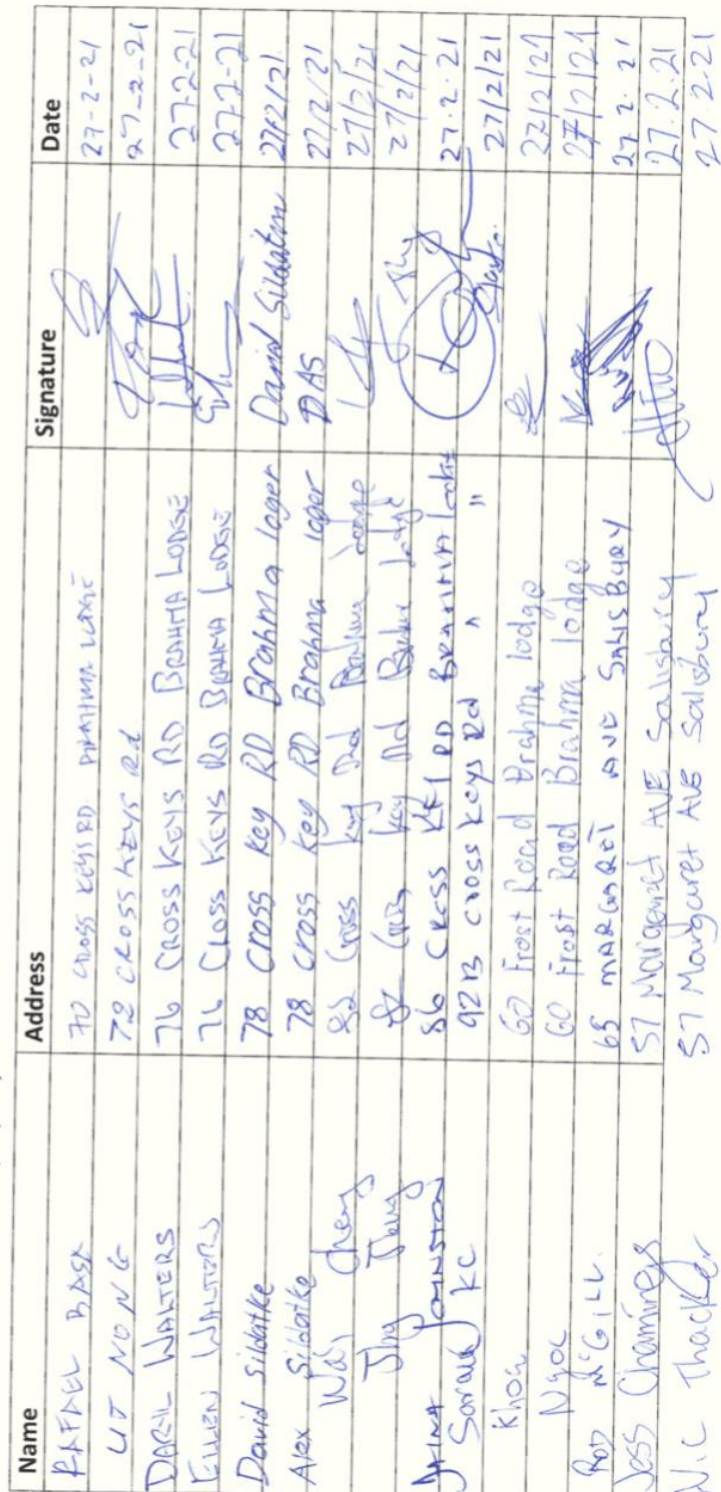 Name Address Signature Date
RAFAEL 70 CROSS KEYS RD BRAHMA LODGE 27-2-21
UT NONG 72 CROSS KEYS Rd 27-2-21
DARYL WALTERS 76 CROSS KEYS RD BRAHMA LODGE 27-2-21
EILEEN WALTERS 76 CROSS KEYS RD BRAHMA LODGE 27-2-21
David Sildatke 78 Cross Key RD Brahma loger David Sildatke 27/2/21
Alex Sildatke 78 Cross Key RD Brahma loger DAS 27/2/21
82 Cross key Rd Brahma Lodge 27/2/21
82 Cross key Rd Brahma Lodge 27/2/21
JOHNSTON 86 CROSS KEY RD BRAHMA 27.2.21
KC 92B Cross Keys Rd " " 27/2/21
Khoa 60 Frost Road Brahma lodge 27/2/21
Ngoc 60 Frost Road Brahma lodge 27/2/21
ROD McGILL. 65 MARGARET AVE SALISBURY 27.2.21
Jess Chamings 57 Margaret AVE Salisbury 27.2.21
Nic Thacker 57 Margaret AVE Salisbury 27.2.21